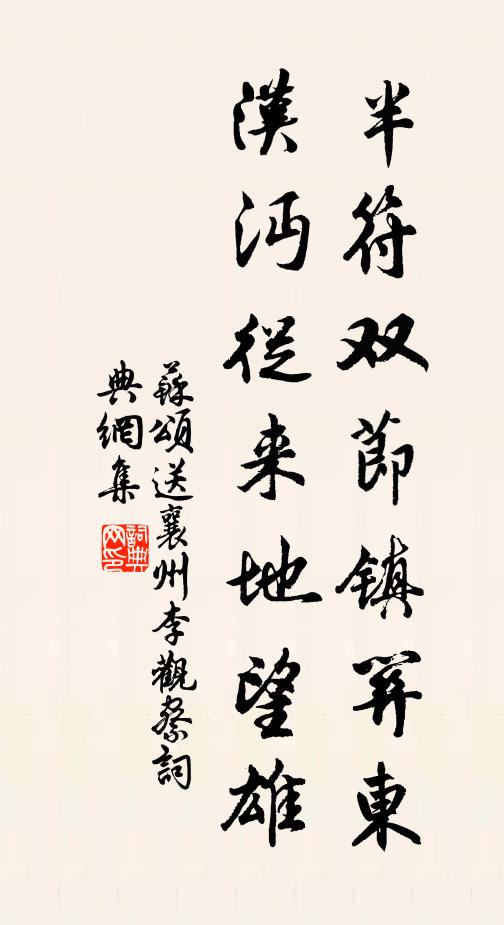 半符双節镇関東
漢沔從来地望雄
蘇頌送襄州李觀察詞
典網集
詞典網印